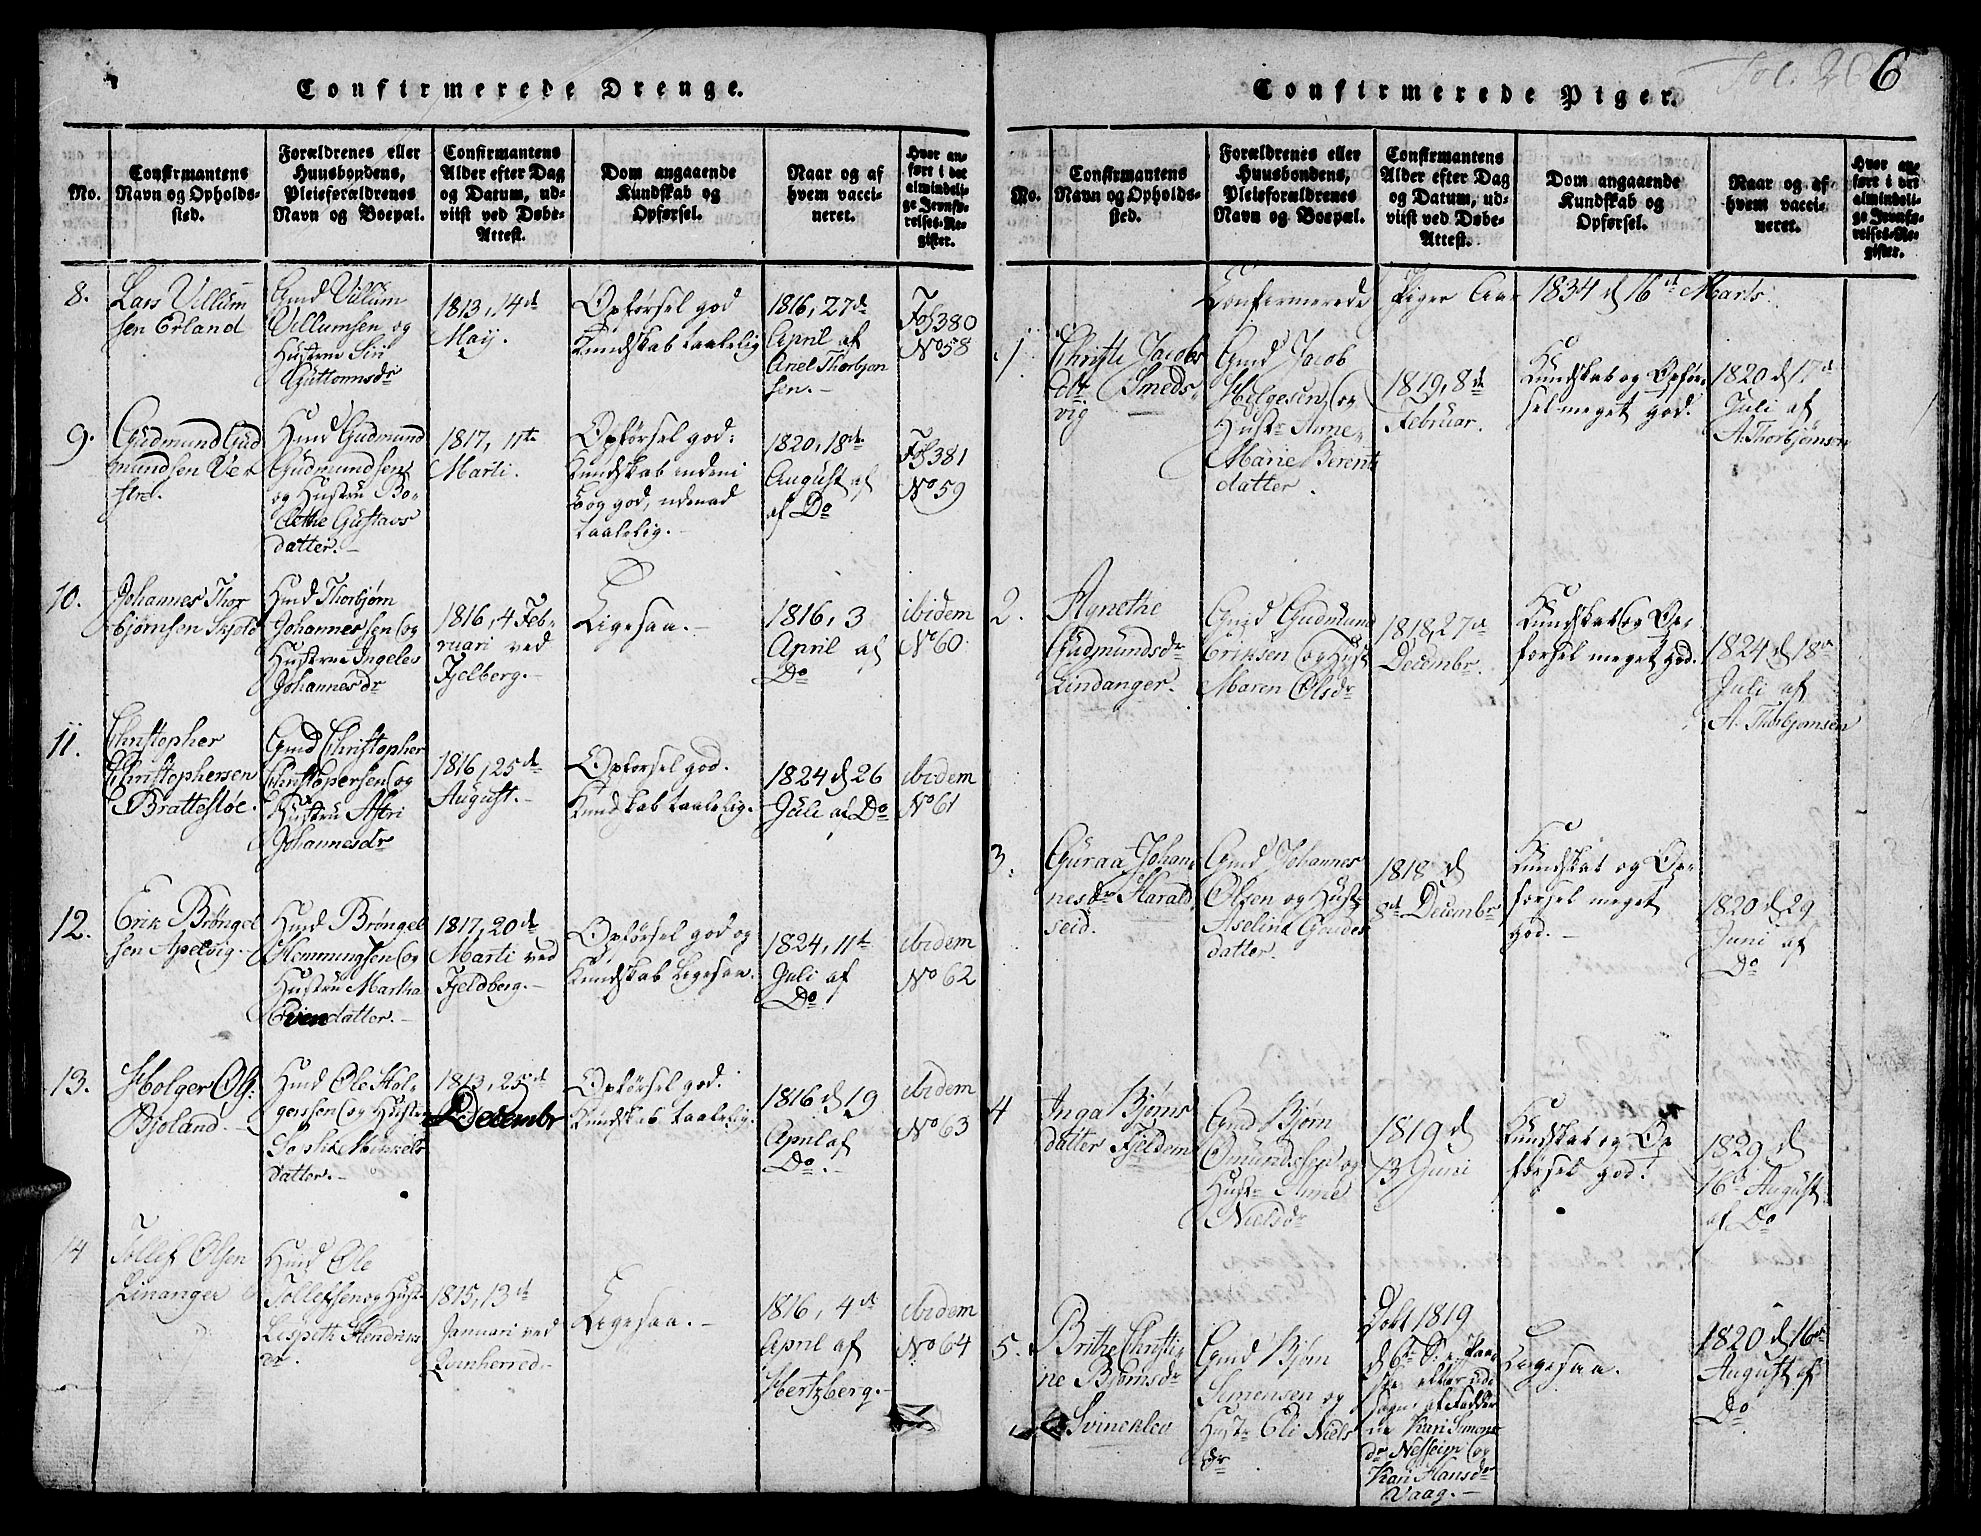 Confirmerede Drenge.
No.
Confirmantens
Navn og Opholds-
sted.
Forældrenes eller
Huusbondens,
Pleieforældrenes
Navn og Boepæl.
Confirmantens
Alder efter Dag
og Datum, ud-
viist ved Døbe-
Attest.
Dom angaaende
Kundskab og
Opførsel.
Naar og af
hvem vacci-
neret.
Hvor an-
ført i det
almindeli-
ge Jevnfø-
relses-Re-
gister.
8.
Lars Villum
sen Erland
Gmd Villum
Villumsen og
Hustrue Siri
Guttormsdr
1813, 4de
May.
Opførsel god
Kundskab taalelig
1816, 27de
April af
Anel Thorbjøn
sen.-
Fol 380
No 58
9.
Gudmund Gud
mundsen
Hmd Gudmund
Gudmundsen
og Hustru Bo-
lethe Gustavs
datter.-
1817, 11te
Marti.
Opførsel god.
Kundskab indeni
Bog god, udenad
taalelig.-
1820, 18de
August af
af Do
Fol 381
No 59
10.
Johannes Thor
bjørnsen Skjold
Hmd Thorbjørn
Johannessen og
Hustrue Ingeles
Johannesdr
1816, 4 Feb-
ruari ved
Fjelberg.-
Ligesaa.-
1816, 3
April af
Do
ibidem
No 60
11.
Christopher
Christophersen
Brattesløe.
Gmd Christopher
Christopersen og
Hustru Astri
Johannesdr
1816, 25de
August.-
Opførsel god.
Kundskab taalelig.
1824 d 26
Juli af Do
ibidem
No 61
12.
Erik Brøngel
sen Apelvig.-
Hmd Brøngel
Hemmingsen og
Hustru Martha
Evendatter.-
1817, 20de
Marti ved
Fjeldberg.-
Opførsel god og
Kundskab Ligesaa.
1824, 11te
Juli af
Do
ibidem
No 62
13.
Holger Ols:
Bjoland.-
Hmd Ole Hol-
gersen og Hustr
Sophie Mikkels
datter.-
1813, 25de
Decembr
Opførsel god.
Kundskab taalelig.
1816 d 19
April af
Do.-
ibidem
No 63
14
Tollef Olsen
Linanger
Hmd Ole
Tollefsen og Hust
Lispeth Hendrics
dr.
1815, 13de
Januari ved
Qvinherred.-
Ligesaa.-
1816, 4de
April af
Hertzberg.-
ibidem
No 64
Confirmerede Piger.
6
No.
Confirmantens
Navn og Opholds-
sted.
Forældrenes eller
Huusbondens,
Pleieforældrenes
Navn og Boepæl.
Confirmantens
Alder efter Dag
og Datum, ud-
viist ved Døbe-
Attest.
Dom angaaende
Kundskab og
Opførsel.
Naar og af
hvem vacci-
neret.
Hvor an-
ført i det
almindeli-
ge Jevnfø-
relses-Re-
gister.
Confirmerede Piger Aar 1834 d 16de Marts.
1
Christi Jacobs
dtr Smeds-
vig
Gmd Jacob
Helgesen og
Hustr Anne
Marie Berents
datter.
1819, 8de
Februar.
Kundskab og Opfør-
sel meget god.
1820 d 17de
Juli af
A. Thorbjørnsen
2.
Agnethe
Gudmundsdr
Lindanger.
Gmd Gudmund
Eriksen og Hust
Maren Olsdr
1818, 27de
Decembr.
Kundskab og Op-
førsel meget god.
1824 d 18de
Juli af
A. Thorbjønsen
3.
Guraa Johan-
nesdr Harald
seid.
Gmd Johannes
Olsen og Hust
Aselina Goudes
datter.
1818 d
8de Decembr
Kundskab og Op-
førsel meget
god.-
1820 d 29
Juni af
Do
4
Inga Bjørns
datter Fjeldem
Gmd Bjørn
Omundsen og
Hustr Anne
Nielsdr
1819 d
13 Juni
Kundskab og Op
førsel god.
1829 d
16d August
af Do
5.
Brithe Christi-
ne Bjørnsdr
Svineklev
Gmd Bjørn
Simonsen og
Hustr Eli Niels
dr
Døbt 1819
d 6te
Kari Simons
dr Nesseim og
Kari Hansdr
Vaag.-
Ligesaa.
1820 d 16de
August af
Do